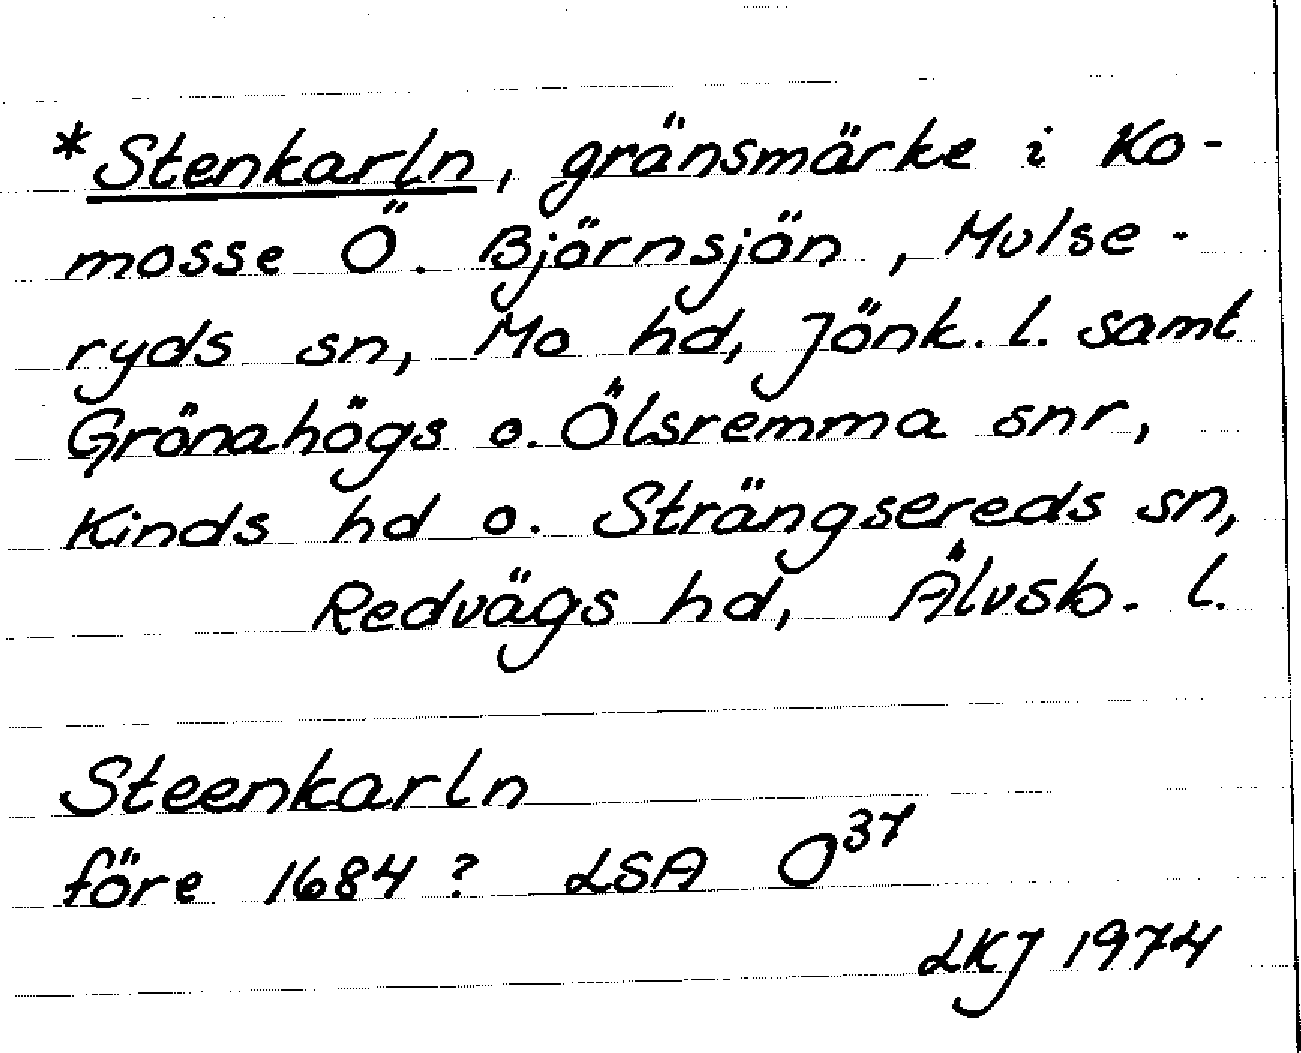 *Stenkarln, gränsmärke i Ko-
mosse Ö. Björnsjön, Mulse-
ryds sn, Mo hd, Jönk. l. samt
Grönahögs o. Ölsremma snr,
Kinds hd o. Strängsereds sn,
Redvägs hd, Älvsb. l.
Steenkarln
före 1684? LSA O³⁷
LKJ 1974